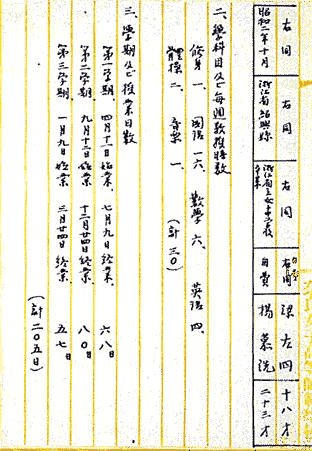 右同 右同 右同 右同 梁 左四 十八才
昭和二年十月 浙江省紹興縣 浙江省立女子中學校卒業 自費 楊慕洗 二十三才
二、學科目及ビ每週教授時數
修身 一、國語 一六、數學 六、英語 四、
體操 二、音樂 一、(計三〇)
三、學期及ビ授業日數
第一学期、四月十一日始業、七月九日終業、六八日
第二学期、九月十二日始業、十二月廿四日終業、八〇日
第三学期、一月九日始業、三月廿四日終業、五七日
(計二〇五日)